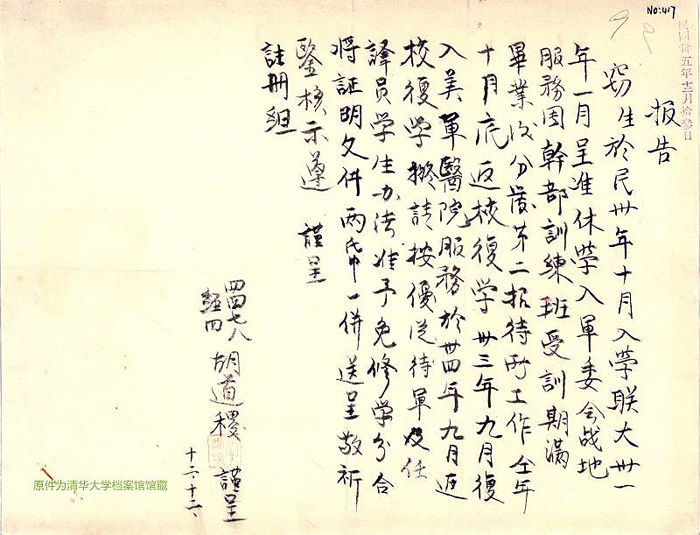 No:417
民国卅五年十二月拾叁日
报告
窃生於民卅年十月入学联大卅一
年一月呈准休学入軍委会战地
服務团幹部訓練班受訓期滿
畢業後分發第二招待所工作仝年
十月底返校復学卅三年九月復
入美軍醫院服務於卅四年九月返
校復学擬請按優待從軍及任
譯员学生办法准予免修学分合
将証明文件两帋一併送呈敬祈
鑒核示遵 謹呈
註册組
四四七八
經四 胡道稷 謹呈
十二、十二、
原件为清华大学档案馆馆藏